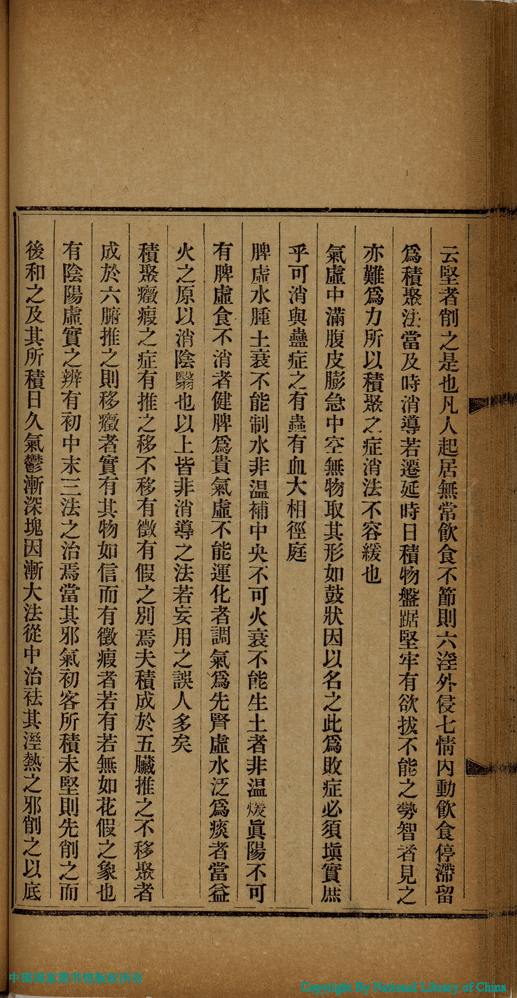 云堅者削之是也凡人起居無常飲食不節則六淫外侵七情內動飲食停滯留
爲積聚法當及時消導若遷延時日積物盤踞堅牢有欲拔不能之勢智者見之
亦難爲力所以積聚之症消法不容緩也
氣虛中滿腹皮膨急中空無物取其形如鼓狀因以名之此爲敗症必須塡實庶
乎可消與蠱症之有蟲有血大相徑庭
脾虛水腫土衰不能制水非温補中央不可火衰不能生土者非温煖眞陽不可
有脾虛食不消者健脾爲貴氣虛不能運化者調氣爲先腎虛水泛爲痰者當益
火之原以消陰翳也以上皆非消導之法若妄用之誤人多矣
積聚癥瘕之症有推之移不移有徵有假之別焉夫積成於五臟推之不移聚者
成於六腑推之則移癥者實有其物如信而有徵瘕者若有若無如花假之象也
有陰陽虛實之辨有初中末三法之治焉當其邪氣初客所積未堅則先削之而
後和之及其所積日久氣鬱漸深塊因漸大法從中治祛其溼熱之邪削之以底
中国国家图书馆版权所有
Copyright By National Library of China